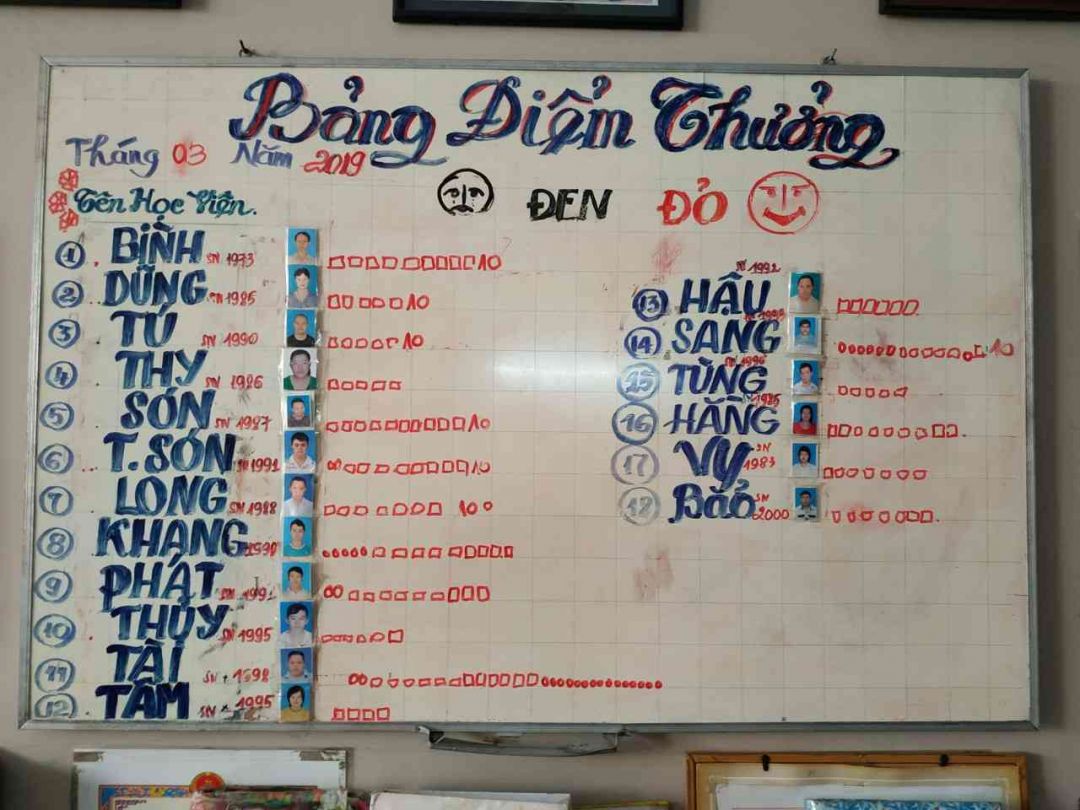 Bảng Điểm Thưởng
Tháng 03 Năm 2019
Tên Học Viên.
ĐEN ĐỎ
1. BÌNH SN 1973 10
2. DŨNG SN 1985 10
3. TÚ SN 1990 10
4. THY SN 1986
5. SƠN SN 1987 10
6. T. SƠN SN 1991 10
7. LONG SN 1988 10
8. KHANG
9. PHÁT SN 1991
10. THỦY SN 1995
11. TÀI SN 1998
12. TÂM SN 1995
13 HẬU SN 1992
14 SANG 10
15 TÙNG SN 1996
16 HẰNG 1985
17 VY SN 1983
18 Bảo SN 2000